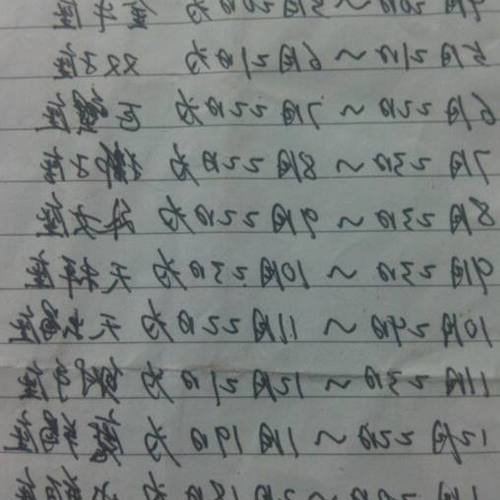 5月21日～6月21日为 双子座
6月22日～7月22日为 巨蟹座
7月23日～8月22日为 狮子座
8月23日～9月22日为 处女座
9月23日～10月23日为 天秤座
10月24日～11月22日为 天蝎座
11月23日～12月21日为 射手座
12月22日～1月19日为 摩羯座